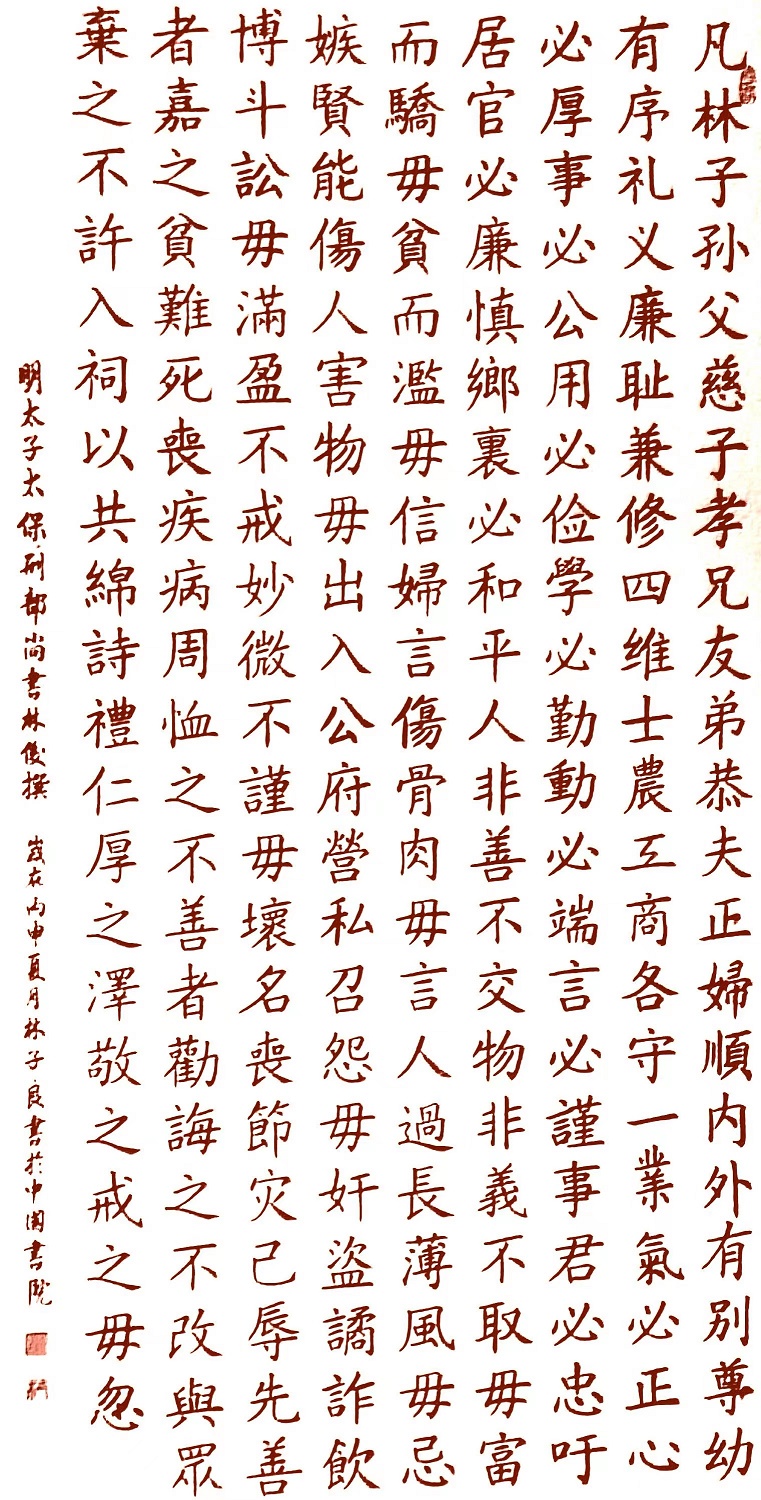 凡林子孙父慈子孝兄友弟恭夫正婦順内外有别尊幼
有序礼义廉耻兼修四维士農工商各守一業氣必正心
必厚事必公用必俭學必勤動必端言必謹事君必忠吁
居官必廉慎鄉裏必和平人非善不交物非義不取毋富
而驕毋貧而濫毋信婦言傷骨肉毋言人過長薄風毋忌
嫉賢能傷人害物毋出入公府營私召怨毋奸盜譎詐飲
博斗訟毋滿盈不戒妙微不謹毋壞名喪節灾己辱先善
者嘉之貧難死喪疾病周恤之不善者勸誨之不改與眾
棄之不許入祠以共綿詩禮仁厚之澤敬之戒之毋忽
明太子太保刑部尚書林俊撰 歲在丙申夏月林子良書於中國書院